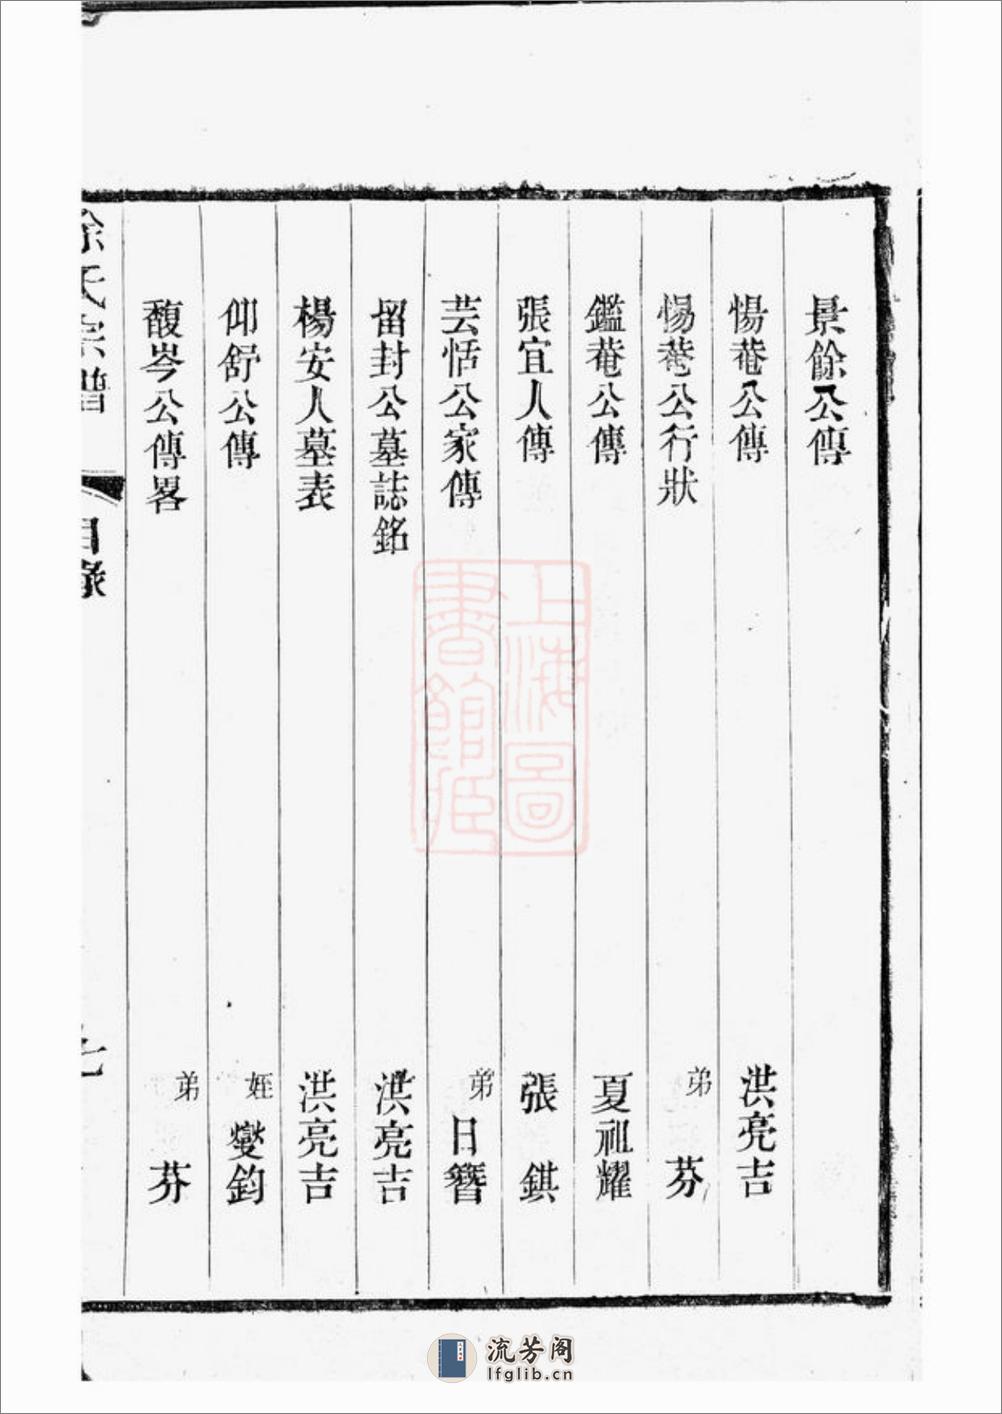 景餘公傳
惕菴公傳 洪亮吉
惕菴公行狀 弟 芬
鑑菴公傳 夏祖耀
張宜人傳 張 錤
芸恬公家傳 弟 日簪
留封公墓誌銘 洪亮吉
楊安人墓表 洪亮吉
仰舒公傳 姪 燮鈞
馥岑公傳畧 弟 芬
徐氏宗譜 目錄 七
上海圖書館藏
流芳阁
lfglib.cn